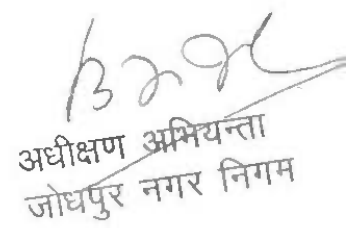 अधीक्षण अभियन्ता
जोधपुर नगर निगम